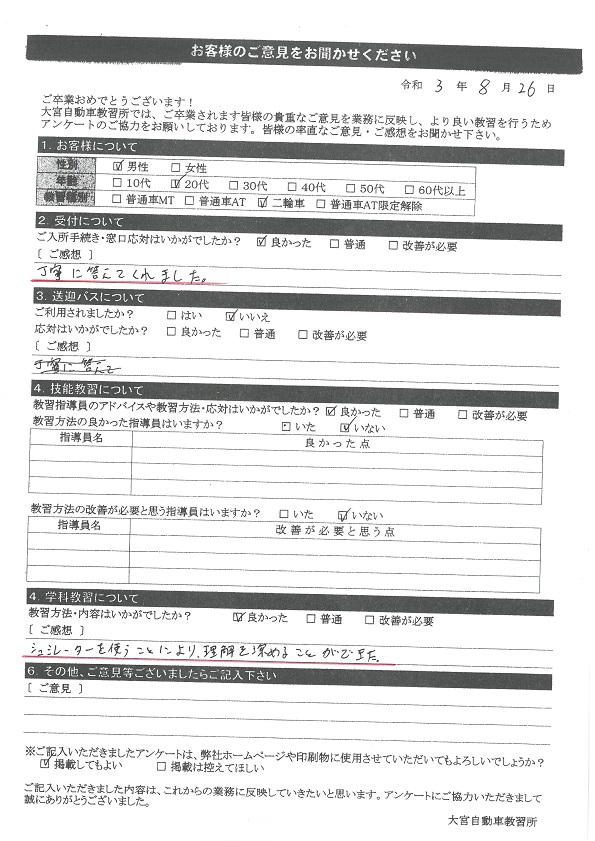 お客様のご意見をお聞かせください
令和 3 年 8 月 26 日
ご卒業おめでとうございます！
大宮自動車教習所では、ご卒業されます皆様の貴重なご意見を業務に反映し、より良い教習を行うため
アンケートのご協力をお願いしております。皆様の率直なご意見・ご感想をお聞かせ下さい。
1. お客様について
性別 ☑ 男性 □ 女性
年齢 □ 10代 ☑ 20代 □ 30代 □ 40代 □ 50代 □ 60代以上
教習種別 □ 普通車MT □ 普通車AT ☑ 二輪車 □ 普通車AT限定解除
2. 受付について
ご入所手続き・窓口応対はいかがでしたか？ ☑ 良かった □ 普通 □ 改善が必要
〔 ご感想 〕
丁寧に答えてくれました。
3. 送迎バスについて
ご利用されましたか？ □ はい ☑ いいえ
応対はいかがでしたか？ □ 良かった □ 普通 □ 改善が必要
〔 ご感想 〕
丁寧に答えて
4. 技能教習について
教習指導員のアドバイスや教習方法・応対はいかがでしたか？ ☑ 良かった □ 普通 □ 改善が必要
教習方法の良かった指導員はいますか？ □ いた ☑ いない
指導員名 良かった点
教習方法の改善が必要と思う指導員はいますか？ □ いた ☑ いない
指導員名 改善が必要と思う点
4. 学科教習について
教習方法・内容はいかがでしたか？ ☑ 良かった □ 普通 □ 改善が必要
〔 ご感想 〕
シュミレーターを使うことにより、理解を深めることができた。
6. その他、ご意見等ございましたらご記入下さい
〔 ご意見 〕
※ご記入いただきましたアンケートは、弊社ホームページや印刷物に使用させていただいてもよろしいでしょうか？
☑ 掲載してもよい □ 掲載は控えてほしい
ご記入いただきました内容は、これからの業務に反映していきたいと思います。アンケートにご協力いただきまして
誠にありがとうございました。
大宮自動車教習所